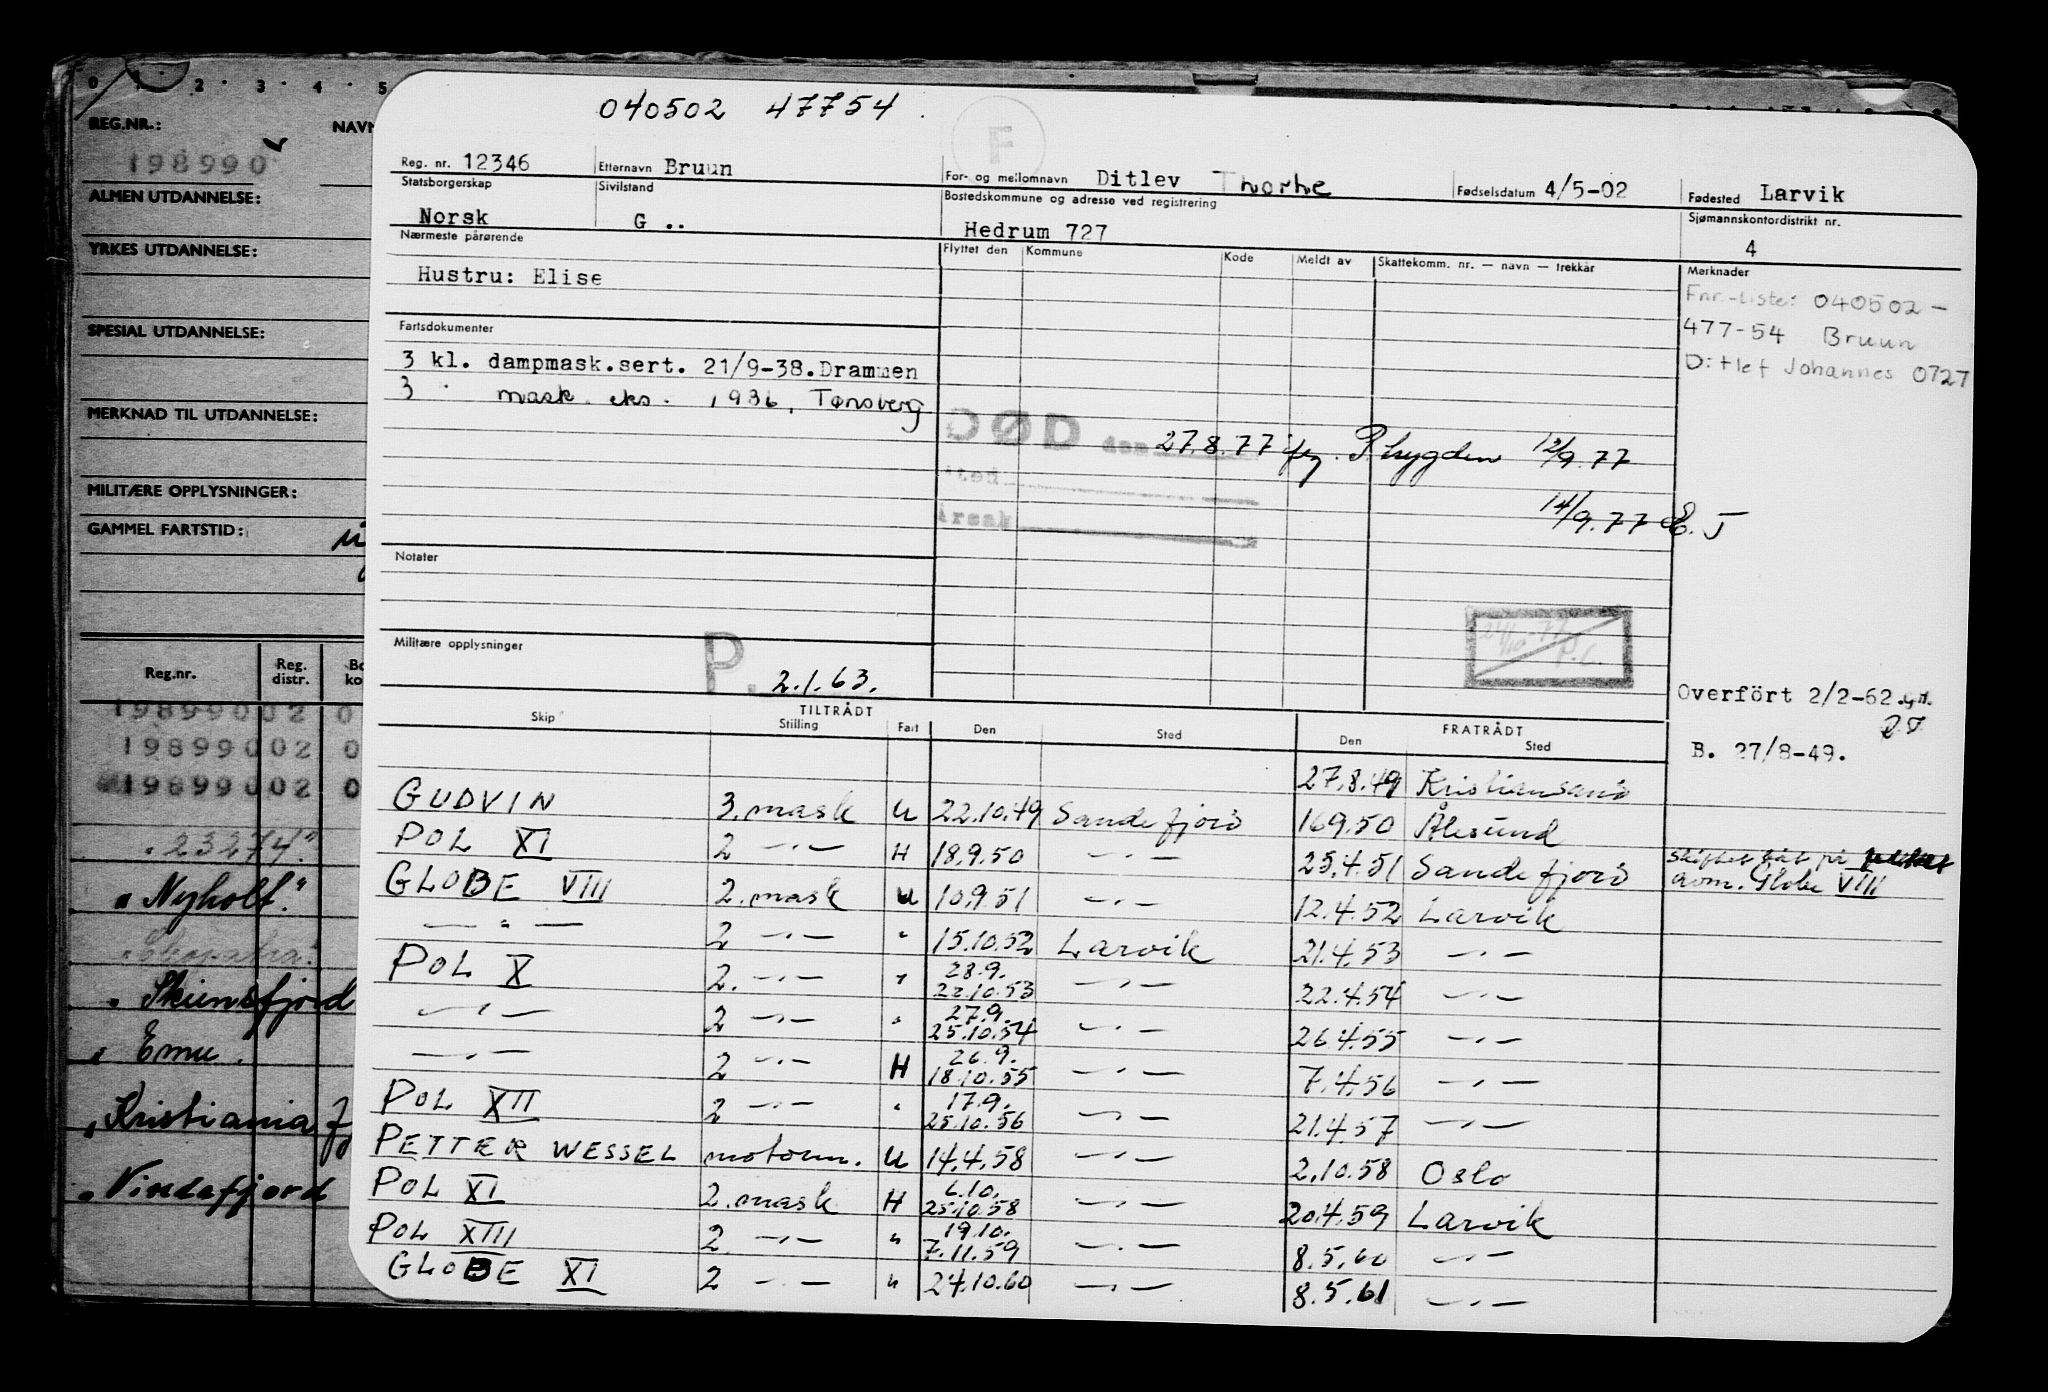 040502 47754
F
Reg. nr. 12346 Etternavn Bruun For- og mellomnavn Ditlev Thorhe Fødselsdatum 4/5-02 Fødested Larvik
Statsborgerskap Norsk Sivilstand G .. Bostedskommune og adresse ved registrering Hedrum 727 Sjømannskontordistrikt nr. 4
Nærmeste pårørende Flyttet den Kommune Kode Meldt av Skattekomm. nr. — navn — trekkår Merknader
Hustru: Elise
Fnr.-liste: 040502-
477-54 Bruun
Ditlef Johannes 0727
Fartsdokumenter
3 kl. dampmask.sert. 21/9-38.Drammen
3 " mask. eks. 1936, Tønsberg
DØD den 27.8.77 12/9.77
sted
årsak
14/9.77 E. J
Notater
Militære opplysninger
P. 2.1.63.
24/10-77
P.C.
Overfört 2/2-62.
B. 27/8-49.
TILTRÅDT FRATRÅDT
Skip Stilling Fart Den Sted Den Sted
27.8.49 Kristiansand
GUDVIN 3. mask U 22.10.49 Sandefjord 16.9.50 Ålesund
POL XI 2 —"— H 18.9.50 —"— 25.4.51 Sandefjord skiftet båt på
GLOBE VIII 2. mask U 10.9.51 —"— 12.4.52 Larvik Globe VIII
—"— 2 —"— " 15.10.52 Larvik 21.4.53 —"—
POL X 2. —"— " 28.9. 22.10.53 —"— 22.4.54 —"—
—"— 2 —"— " 27.9. 25.10.54 —"— 26.4.55 —"—
—"— 2 —"— H 26.9. 18.10.55 —"— 7.4.56 —"—
POL XII 2 —"— " 17.9. 25.10.56 —"— 21.4.57 —"—
PETTER WESSEL motorm. U 14.4.58 —"— 2.10.58 Oslo
POL XI 2. mask H 6.10. 25.10.58 —"— 20.4.59 Larvik
POL XIII 2. —"— " 19.10. 7.11.59 —"— 8.5.60 —"—
GLOBE XI 2 —"— " 24.10.60 —"— 8.5.61 —"—
0 1 2 3 4 5
REG.NR.: NAVN
198990
ALMEN UTDANNELSE:
YRKES UTDANNELSE:
SPESIAL UTDANNELSE:
MERKNAD TIL UTDANNELSE:
MILITÆRE OPPLYSNINGER:
GAMMEL FARTSTID:
Reg.nr. Reg. distr. Bo ko
198990 02 0
198990 02 0
198990 02 0
"23274."
" Nyholt."
" Skiensfjord
" Emu.
" Kristiania fj
" Vindafjord